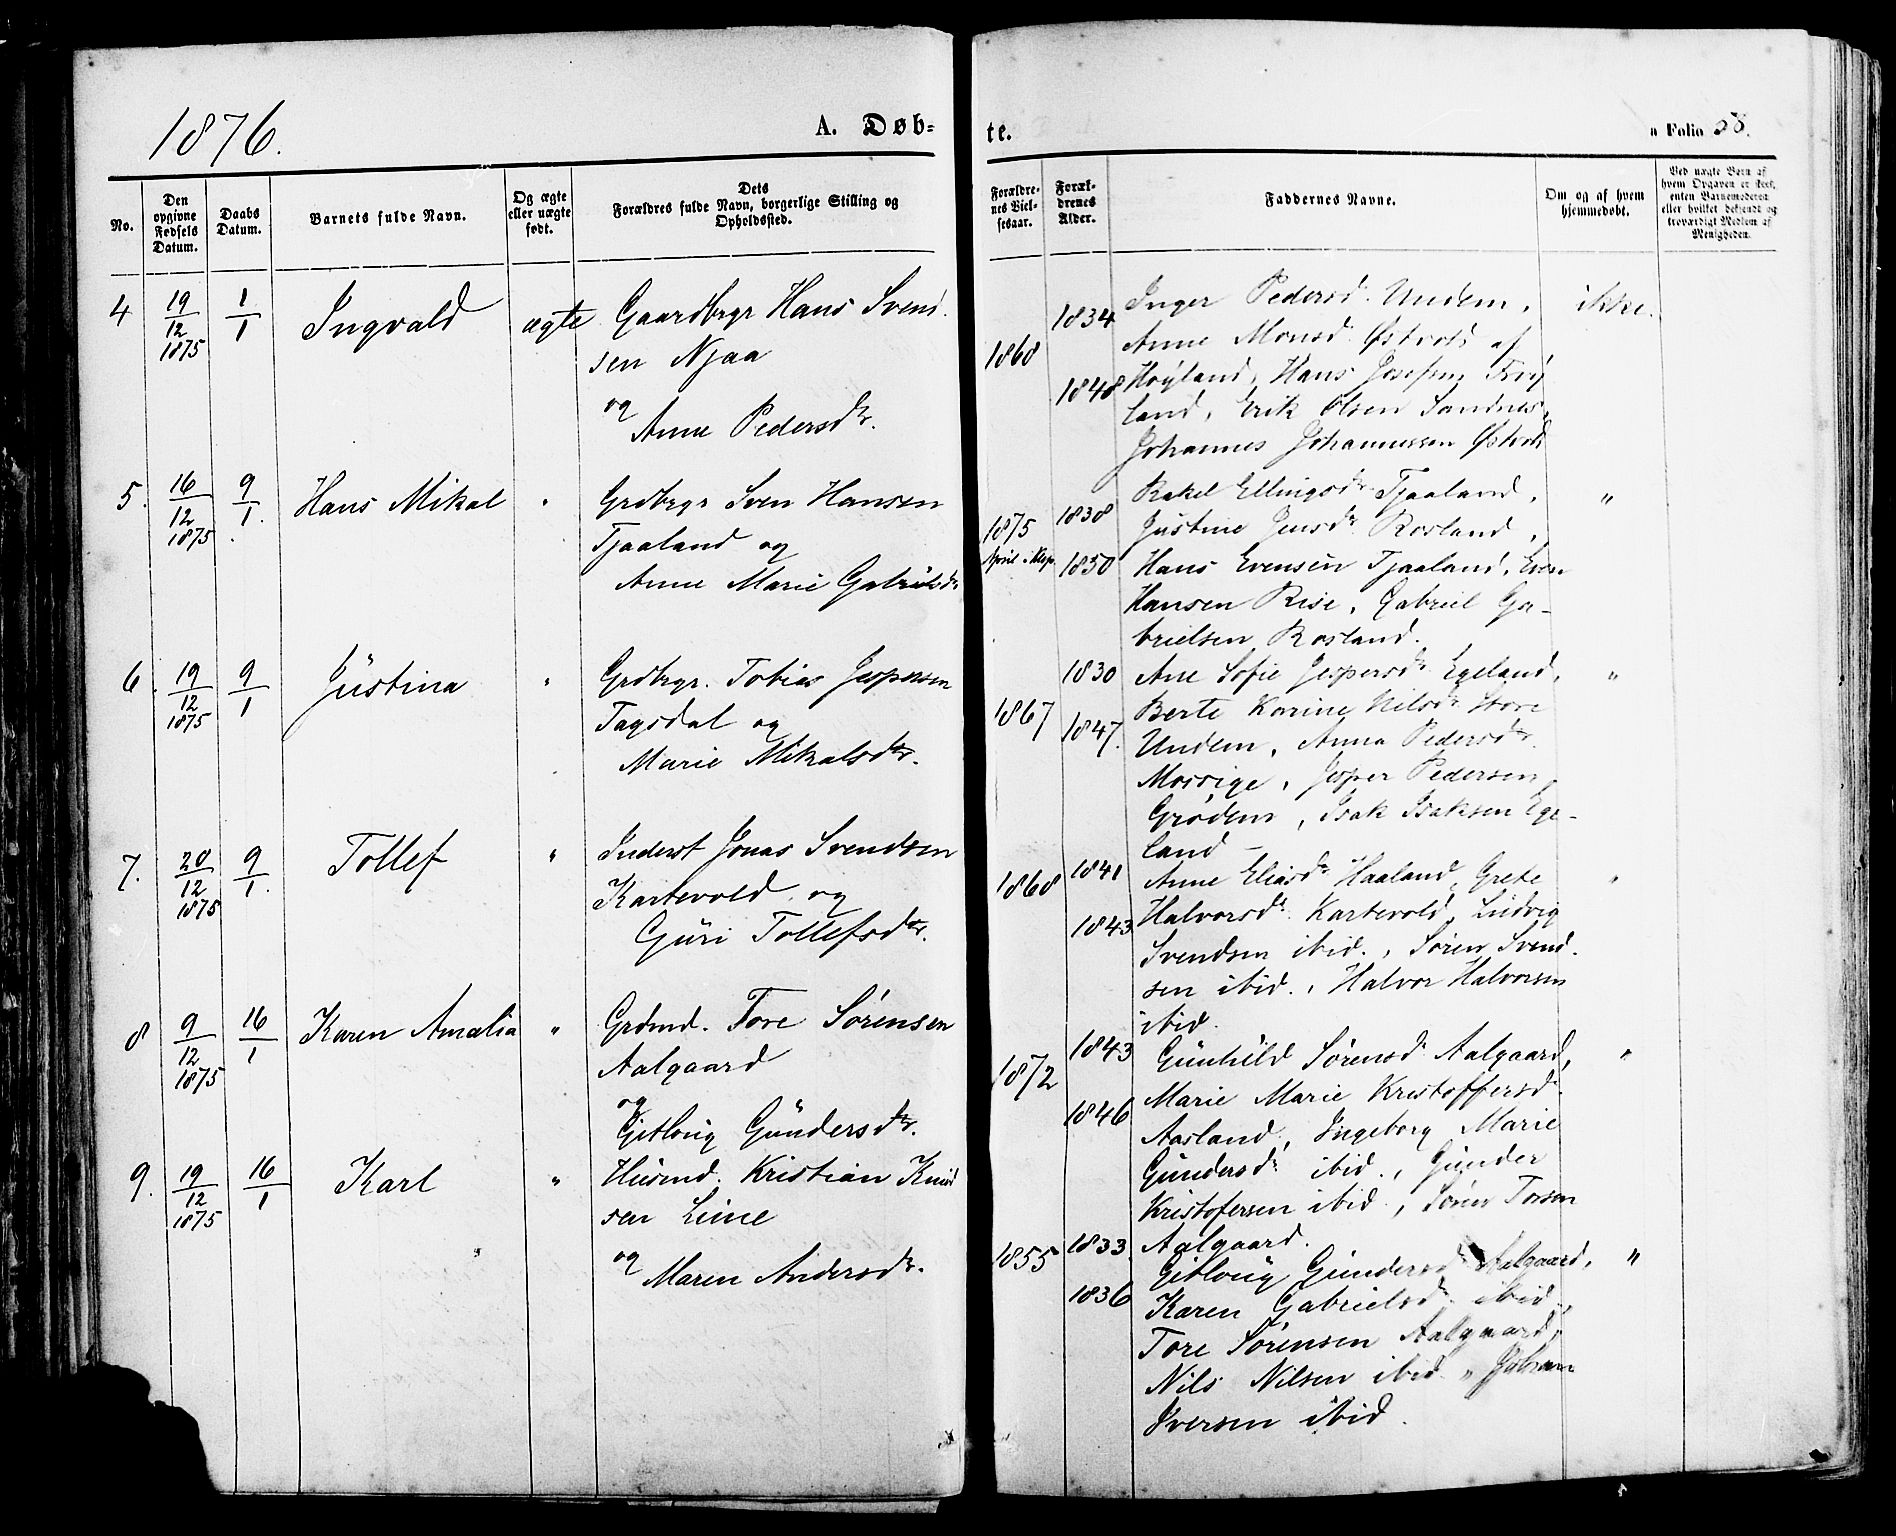 1876.
A. Døb-
te.
" Folio 58.
No.
Den opgivne Fødsels Datum.
Daabs Datum.
Barnets fulde Navn.
Og ægte eller uægte født.
Dets Forældres fulde Navn, borgerlige Stilling og Opholdssted.
Forældrenes Vielsesaar.
Forældrenes Alder.
Faddernes Navne.
Om og af hvem hjemmedøbt.
Ved uægte Børn af hvem Opgaven er skeet, enten Barnemoderen eller hvilket bekjendt og troværdigt Medlem af Menigheden.
4 19/12 1875 1/1 Ingvald ægte Gaardbrgr Hans Svend-
sen Njaa
og
Anne Pedersdtr.
1868 1834 1848
Inger Pedersd. Undem, ikke.
Anne Monsd. Østvold af
Høyland, Hans Josefsen Frøy
land, Erik Olsen Sandnes,
Johannes Johannessen Østvold
5. 16/12 1875. 9/1. Hans Mikal " Grdbrgr Sven Hansen
Tjaaland og
Anne Marie Gabrielsdtr
1875 April i Klep. 1838 1850
Rakel Ellingsdr Tjaaland, "
Justine Jensdr Rosland,
Hans Evensen Tjaaland, Even
Hansen Rise, Gabriel Ga-
brielsen Rosland.
6. 19/12 1875 9/1 Justina " Grdbrgr. Tobias Jespersen
Tagsdal og
Marie Mikalsdtr.
1867 1830 1847.
Ane Sofie Jespersdr Egeland, "
Berte Karine Nilsdr Store
Undem, Anna Pedersdtr.
Mossige, Jesper Pedersen
Grødem, Isak Isaksen Ege-
land -
7. 20/12 1875 9/1. Tollef " Inderst Jonas Svendsen
Kartevold og
Guri Tollefsdtr.
1868 1841 1843
Anne Eliasdr Haaland, Grete "
Halvorsdr Kartevold, Ludvig
Svendsen ibid., Søren Svend-
sen ibid., Halvor Halvorsen
ibid.
8 9/12 1875 16/1 Karen Amalia " Grdmd. Tore Sørensen
Aalgaard
og
Gitlaug Gundersdtr.
1872 1843 1846
Gunhild Sørensdr Aalgaard, "
Marie Marie Kristoffersdr
Aasland, Ingeborg Marie
Gundersdr ibid., Gunder
Kristofersen ibid., Søren Torsen
Aalgaard.
9. 19/12 1875 16/1 Karl " Husmd. Kristian Knud
sen Lime
og
Maren Andersdr.
1855 1833 1836
Gitlaug Gundersdr Aalgaard, "
Karen Gabrielsdr ibid.,
Tore Sørensen Aalgaard,
Nils Nilsen ibid., Johan
Iversen ibid.